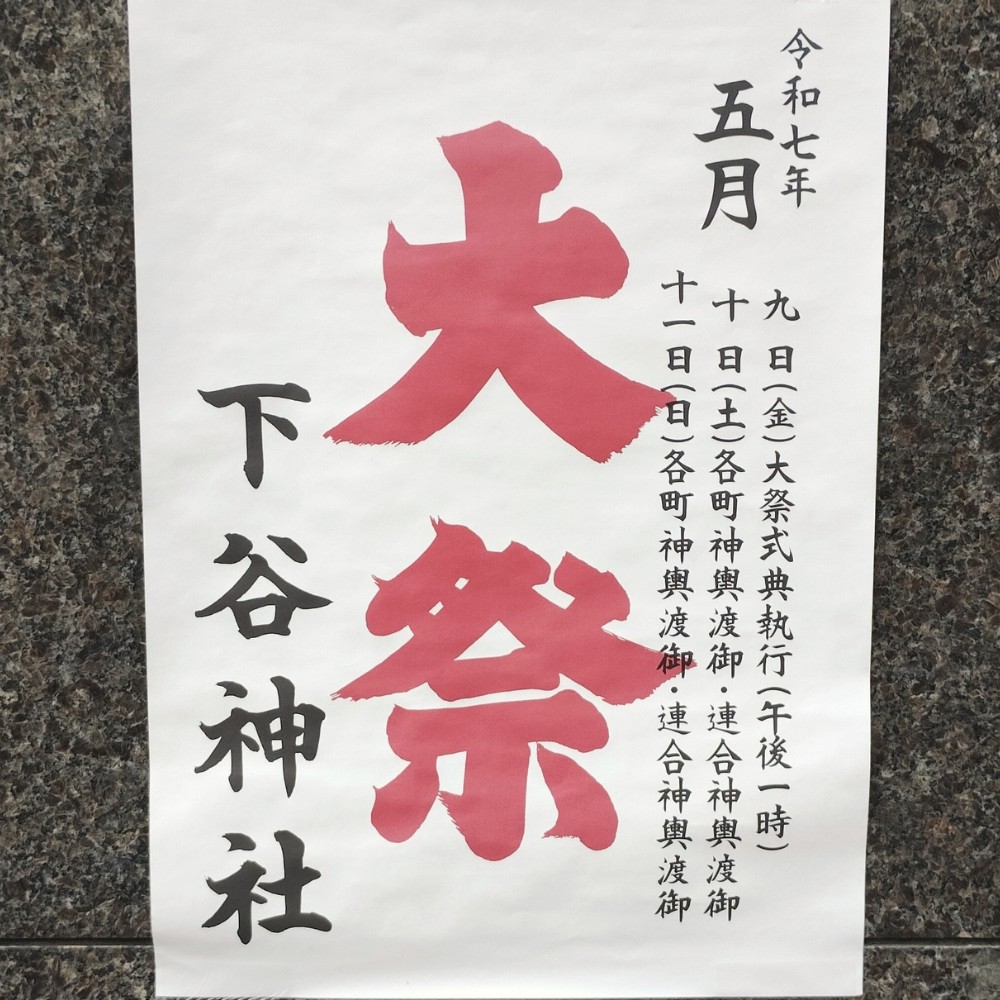 令和七年
五月
九日(金)大祭式典執行(午後一時)
十日(土)各町神輿渡御・連合神輿渡御
十一日(日)各町神輿渡御・連合神輿渡御
大祭
下谷神社